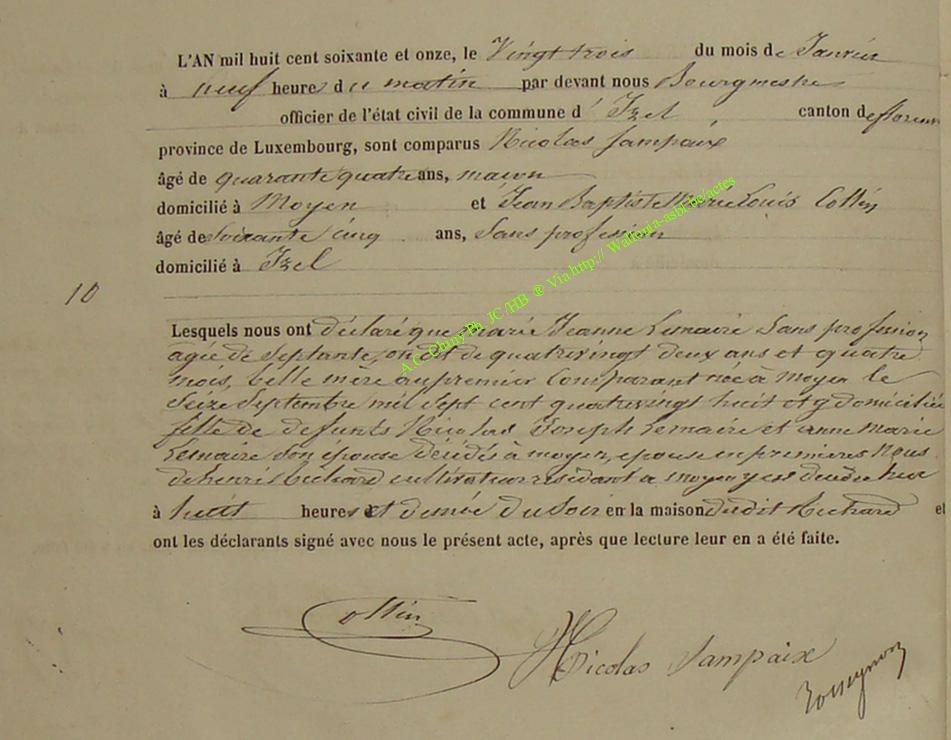 L'AN mil huit cent soixante et onze, le Vingt trois du mois de Janvier
à neuf heures du matin par devant nous Bourgmestre
officier de l'état civil de la commune d' Izel canton de
province de Luxembourg, sont comparus Nicolas Jampaix
âgé de quarante quatre ans, maçon
domicilié à Moyen et Jean Baptiste Louis Collin
âgé de Soixante cinq ans, Sans profession
domicilié à Izel
10
Lesquels nous ont déclaré que Marie Jeanne Lemaire Sans profession
agée de Septante, on dit de quatrevingt deux ans et quatre
mois, belle mère au premier Comparant née à Moyen le
Seize Septembre mil Sept cent quatrevingt huit et y domiciliée
fille de defunts Nicolas Joseph Lemaire et anne Marie
Lemaire Son épouse décédés à moyen, épouse en premieres Noces
de henri cultivateur résidant a moyen y est décédée hier
à huit heures et demie du Soir en la maison dudit et
ont les déclarants signé avec nous le présent acte, après que lecture leur en a été faite.
Collin
Nicolas Jampaix
A.C. Chiny Ph. JC /HB ® Via http:// Wallonia-asbl.be/actes